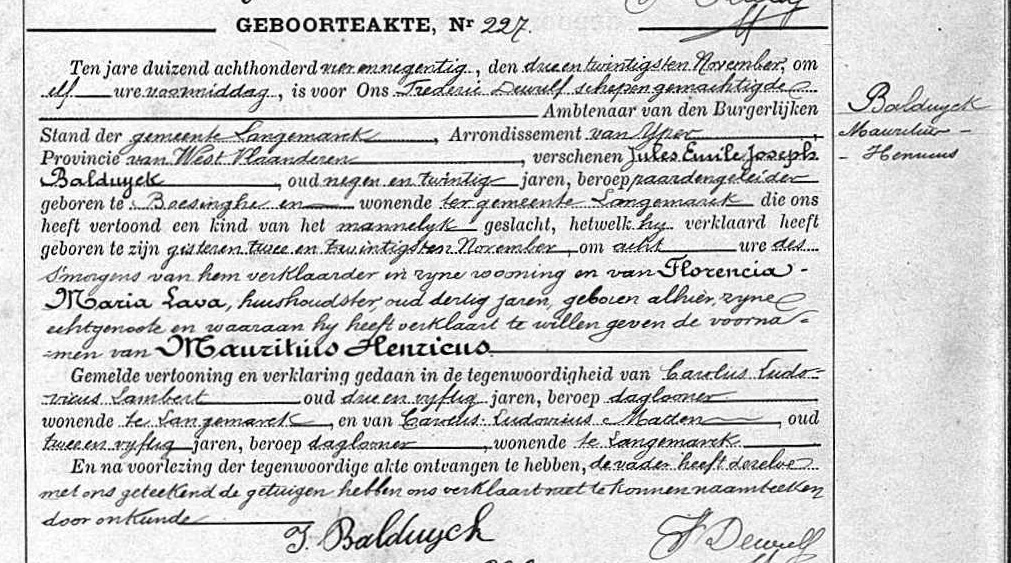 GEBOORTEAKTE, Nr 227.
Ten jare duizend achthonderd vier en negentig, den drie en twintigsten November, om
elf ure voormiddag, is voor Ons Frederic Dewulf schepen gemachtigde
Ambtenaar van den Burgerlijken
Stand der gemeente Langemarck, Arrondissement van Yper,
Provincie van West Vlaanderen, verschenen Jules Emile Joseph
Balduyck, oud negen en twintig jaren, beroep paardengeleider
geboren te Boesinghe en wonende ter gemeente Langemarck die ons
heeft vertoond een kind van het mannelyk geslacht, hetwelk hy verklaard heeft
geboren te zijn gisteren twee en twintigsten November, om acht ure des
s'morgens van hem verklaarder in zyne wooning en van Florencia
Maria Lava, huishoudster, oud dertig jaren, geboren alhier, zyne
echtgenoote en waaraan hy heeft verklaart te willen geven de voorna-
-men van Mauritius Henricus
Gemelde vertooning en verklaring gedaan in de tegenwoordigheid van Carolus Ludo-
vicus Lambert oud drie en vyftig jaren, beroep daglooner
wonende te Langemarck, en van Carolus Ludovicus Madou, oud
twee en vyftig jaren, beroep daglooner, wonende te Langemarck
En na voorlezing der tegenwoordige akte ontvangen te hebben, de vader heeft dezelve
met ons geteekend de getuigen hebben ons verklaart niet te konnen naamteeken
door onkunde
J. Balduyck
F Dewulf
Balduyck
Mauritius -
- Henricus